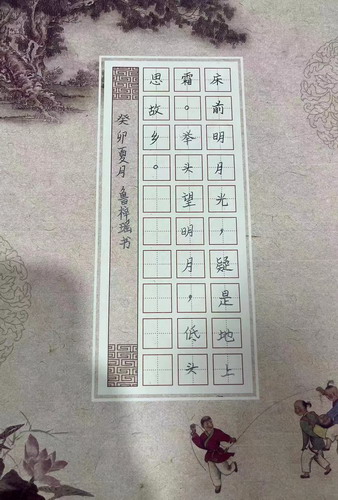 床前明月光，疑是地上
霜。举头望明月，低头
思故乡。
癸卯夏月 鲁梓瑶书